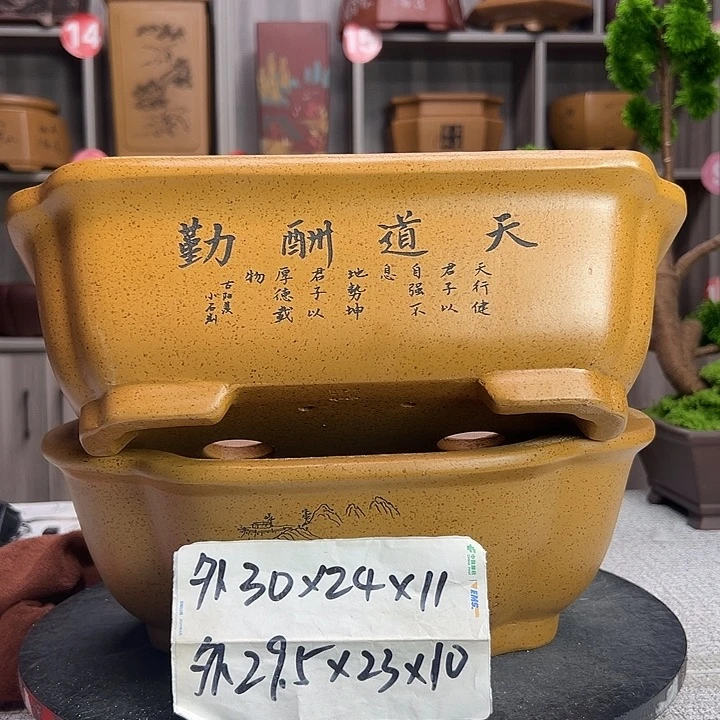 14
15
天道酬勤
天行健
君子以
自强不
息
地势坤
君子以
厚德载
物
小石刻
外30×24×11
外29.5×23×10
中国邮政
EMS